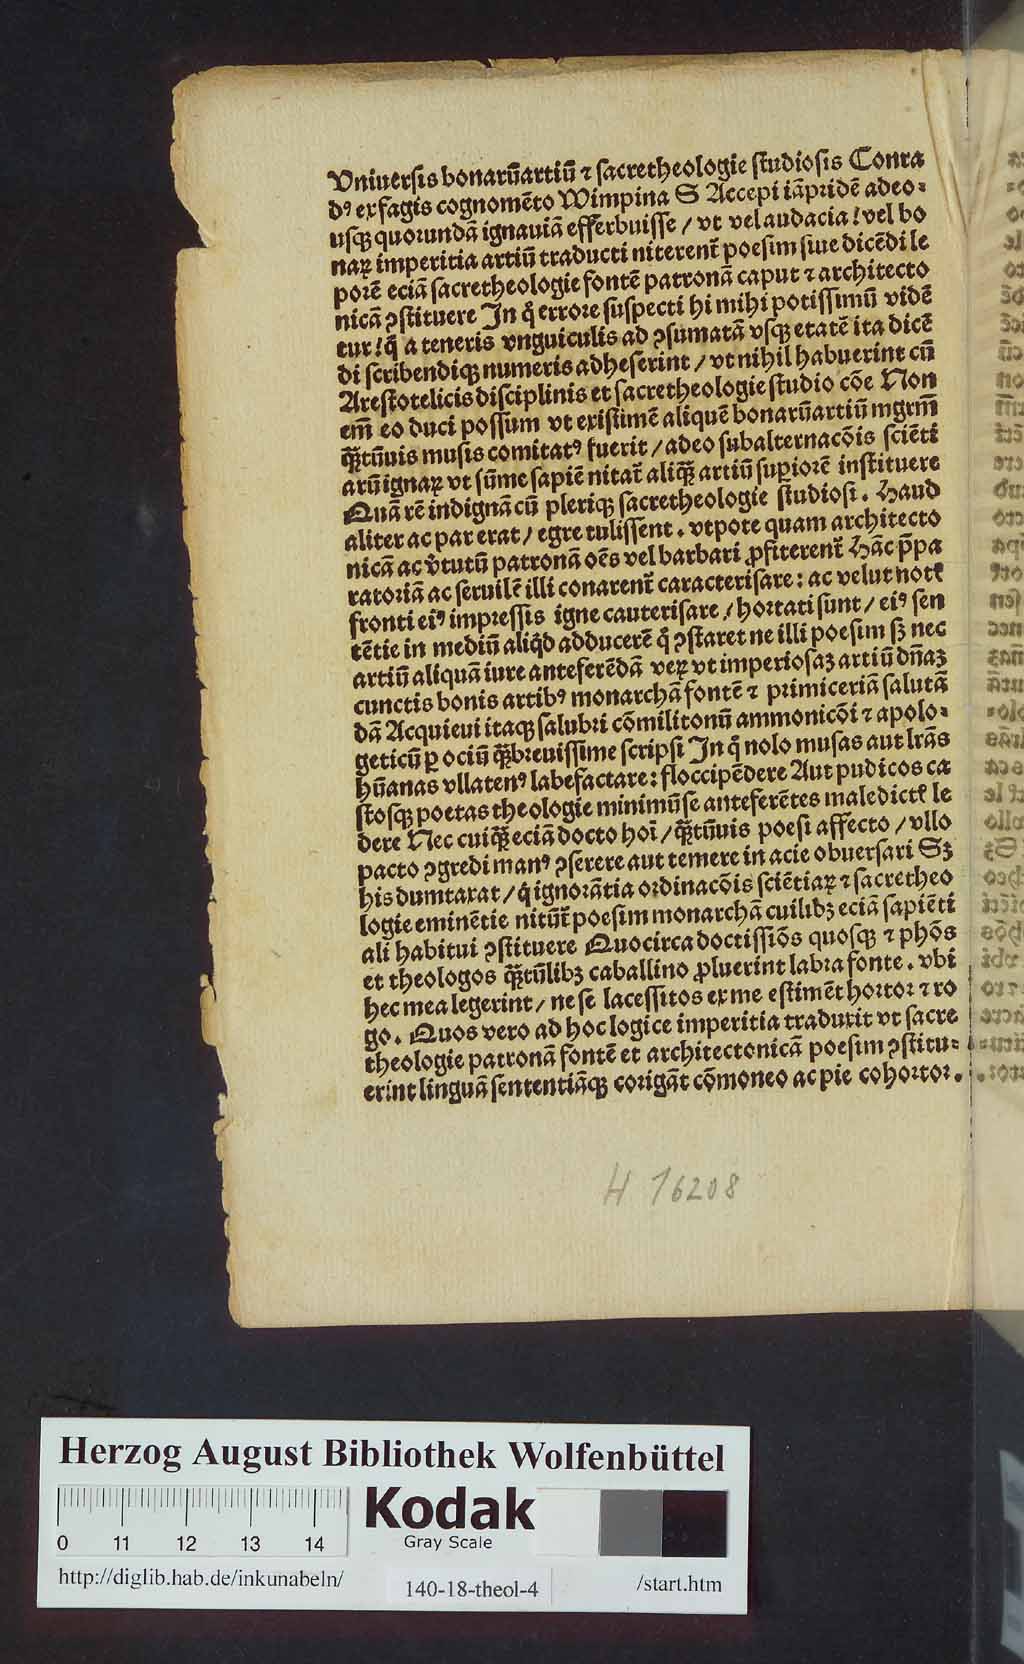 Vniuersis bonarū artiū ⁊ sacretheologie studiosis Conra
dꝰ ex fagis cognomēto Wimpina S Accepi iāpridē adeo-
usqꝫ quorundā ignauiā efferbuisse / vt vel audacia / vel bo
naꝝ imperitia artiū traducti niterent̃ poesim siue dicēdi le
porē eciā sacretheologie fontē patronā caput ⁊ architecto
nicā ꝯstituere In q̊ errore suspecti hi mihi potissimū vidē
tur / q̇ a teneris vnguiculis ad ꝯsumatā vsqꝫ etatē ita dicē
di scribendiqꝫ numeris adheserint / vt nihil habuerint cū
Arestotelicis disciplinis et sacretheologie studio cōe Non
em̄ eo duci possum vt existimē aliquē bonarū artiū mgrm̄
qꝫ̄tūuis musis comitatꝰ fuerit / adeo subalternacōis sciēti
arū ignaꝝ vt sūme sapiē nitat̃ aliqꝫ̄ artiū supiorē instituere
Quā rē indignā cū pleriqꝫ sacretheologie studiosi . Haud
aliter ac par erat / egre tulissent . vtpote quam architecto
nicā ac v̓tutū patronā oēs vel barbari ꝓfiterent̃ Hāc p̄pa
ratoriā ac seruilē illi conarent̃ caracterisare : ac velut notꝭ
fronti eiꝰ impressis igne cauterisare / hortati sunt / eiꝰ sen
tētie in mediū aliq̇d adducerē q̊ ꝯstaret ne illi poesim sꝫ nec
artiū aliquā iure anteferēdā veꝝ vt imperiosaꝫ artiū dn̄aꝫ
cunctis bonis artibꝰ monarchā fontē ⁊ primiceriā salutā
dā Acquieui itaqꝫ salubri cōmilitonū ammonicōi ⁊ apolo-
geticū ꝑ ociū qꝫ̄breuissime scripsi In q̊ nolo musas aut lrās
hūanas vllatenꝰ labefactare : floccipēdere Aut pudicos ca
stosqꝫ poetas theologie minimū se anteferētes maledictꝭ le
dere Nec cuiqꝫ̄ eciā docto hoī / qꝫ̄tūuis poesi affecto / vllo
pacto ꝯgredi manꝰ ꝯserere aut temere in acie obuersari Sꝫ
his dumtaxat / q̇ ignorātia ordinacōis sciētiaꝝ ⁊ sacretheo
logie eminētie nitūt̃ poesim monarchā cuilibꝫ eciā sapiēti
ali habitui ꝯstituere Quocirca doctissiōs quosqꝫ ⁊ phōs
et theologos qꝫ̄tūlibꝫ caballino ꝓluerint labra fonte . vbi
hec mea legerint / ne se lacessitos ex me estimēt hortor ⁊ ro
go . Quos vero ad hoc logice imperitia traduxit vt sacre
theologie patronā fontē et architectonicā poesim ꝯstitu-
erint linguā sententiāqꝫ corigāt cōmoneo ac pie cohortor .
H 16208
Herzog August Bibliothek Wolfenbüttel
Kodak
Gray Scale
0 11 12 13 14
http://diglib.hab.de/inkunabeln/ 140-18-theol-4 /start.htm